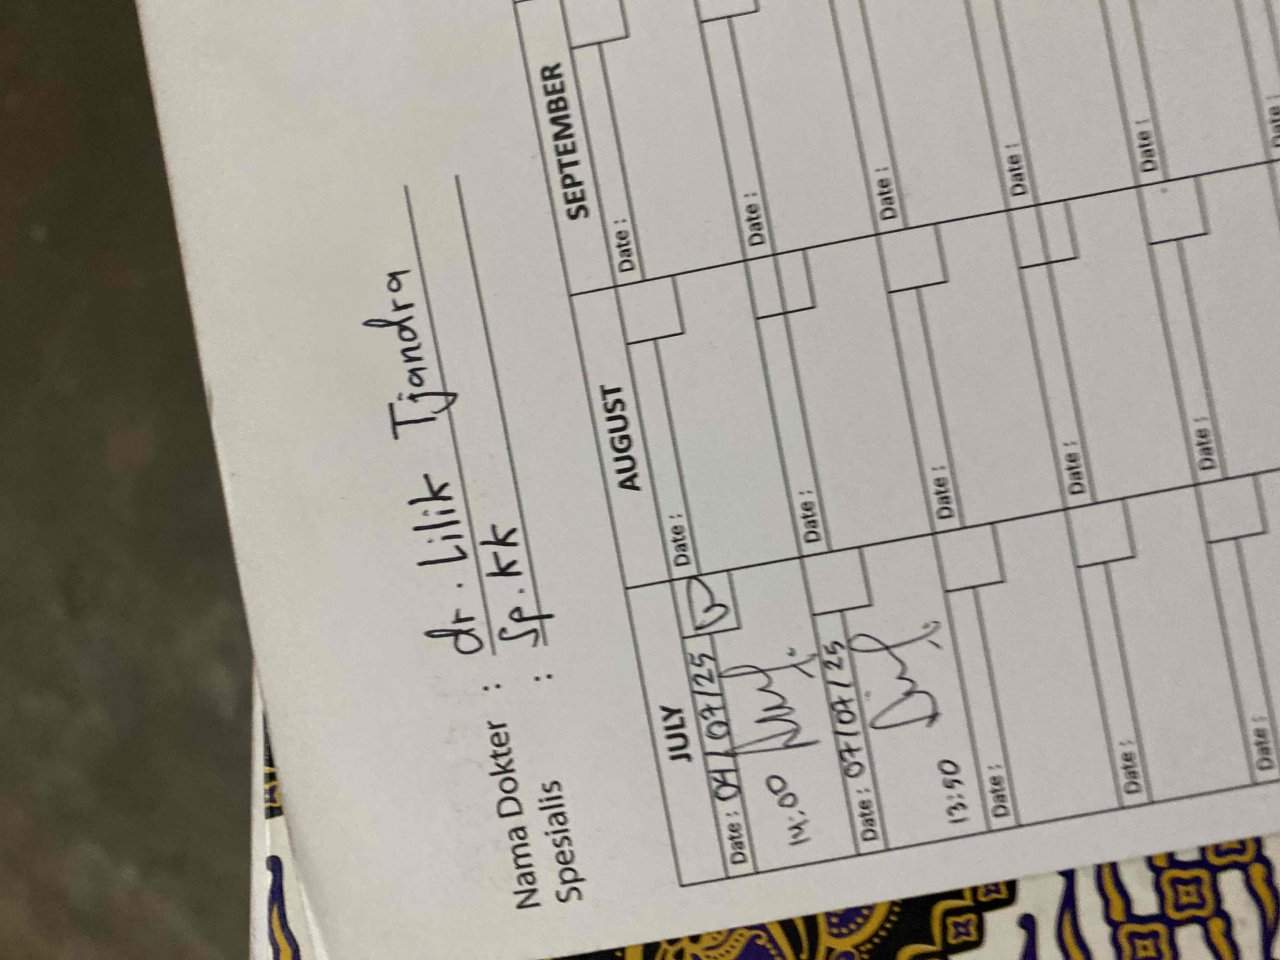 Nama Dokter : dr. Lilik Tjandra
Spesialis : Sp.KK
JULY AUGUST SEPTEMBER
Date : 04/07/25 Date : Date :
14:00
Date : 07/07/25 Date : Date :
13:50
Date : Date : Date :
Date : Date : Date :
Date : Date : Date :
Date :